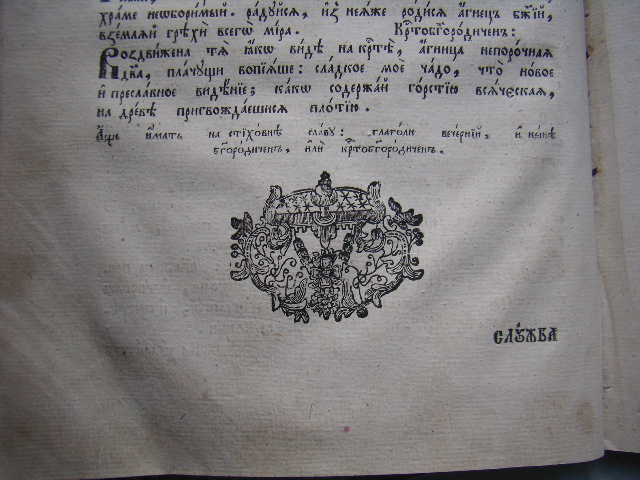 храме неѡборимый. радуйсѧ, и҆з̾ неѧже роди́сѧ а҆́гнецъ бж҃їй,
вземлѧй грѣхѝ всегѡ̀ мі́ра. Крⷭ҇тобг҃оро́диченъ:
Воздви́жена тѧ̀ ꙗ҆́кѡ ви́дѣ на крⷭ҇тѣ̀, а҆́гница непоро́чнаѧ
дв҃а, пла́чꙋщи вопїѧ́ше: сла́дкое моѐ ча́до, что̀ но́вое
и҆ пресла́вное видѣ́нїе; ка́кѡ содержа́й го́рстїю всѧ́ческаѧ,
на дре́вѣ пригвожда́ешисѧ пло́тїю.
А҆́ще и҆́мать на стїхо́внѣ сла́вꙋ: глаго́ли вече́рнїй, и҆ ны́нѣ
бг҃оро́диченъ, и҆лѝ крⷭ҇тобг҃оро́диченъ.
слꙋ́жба